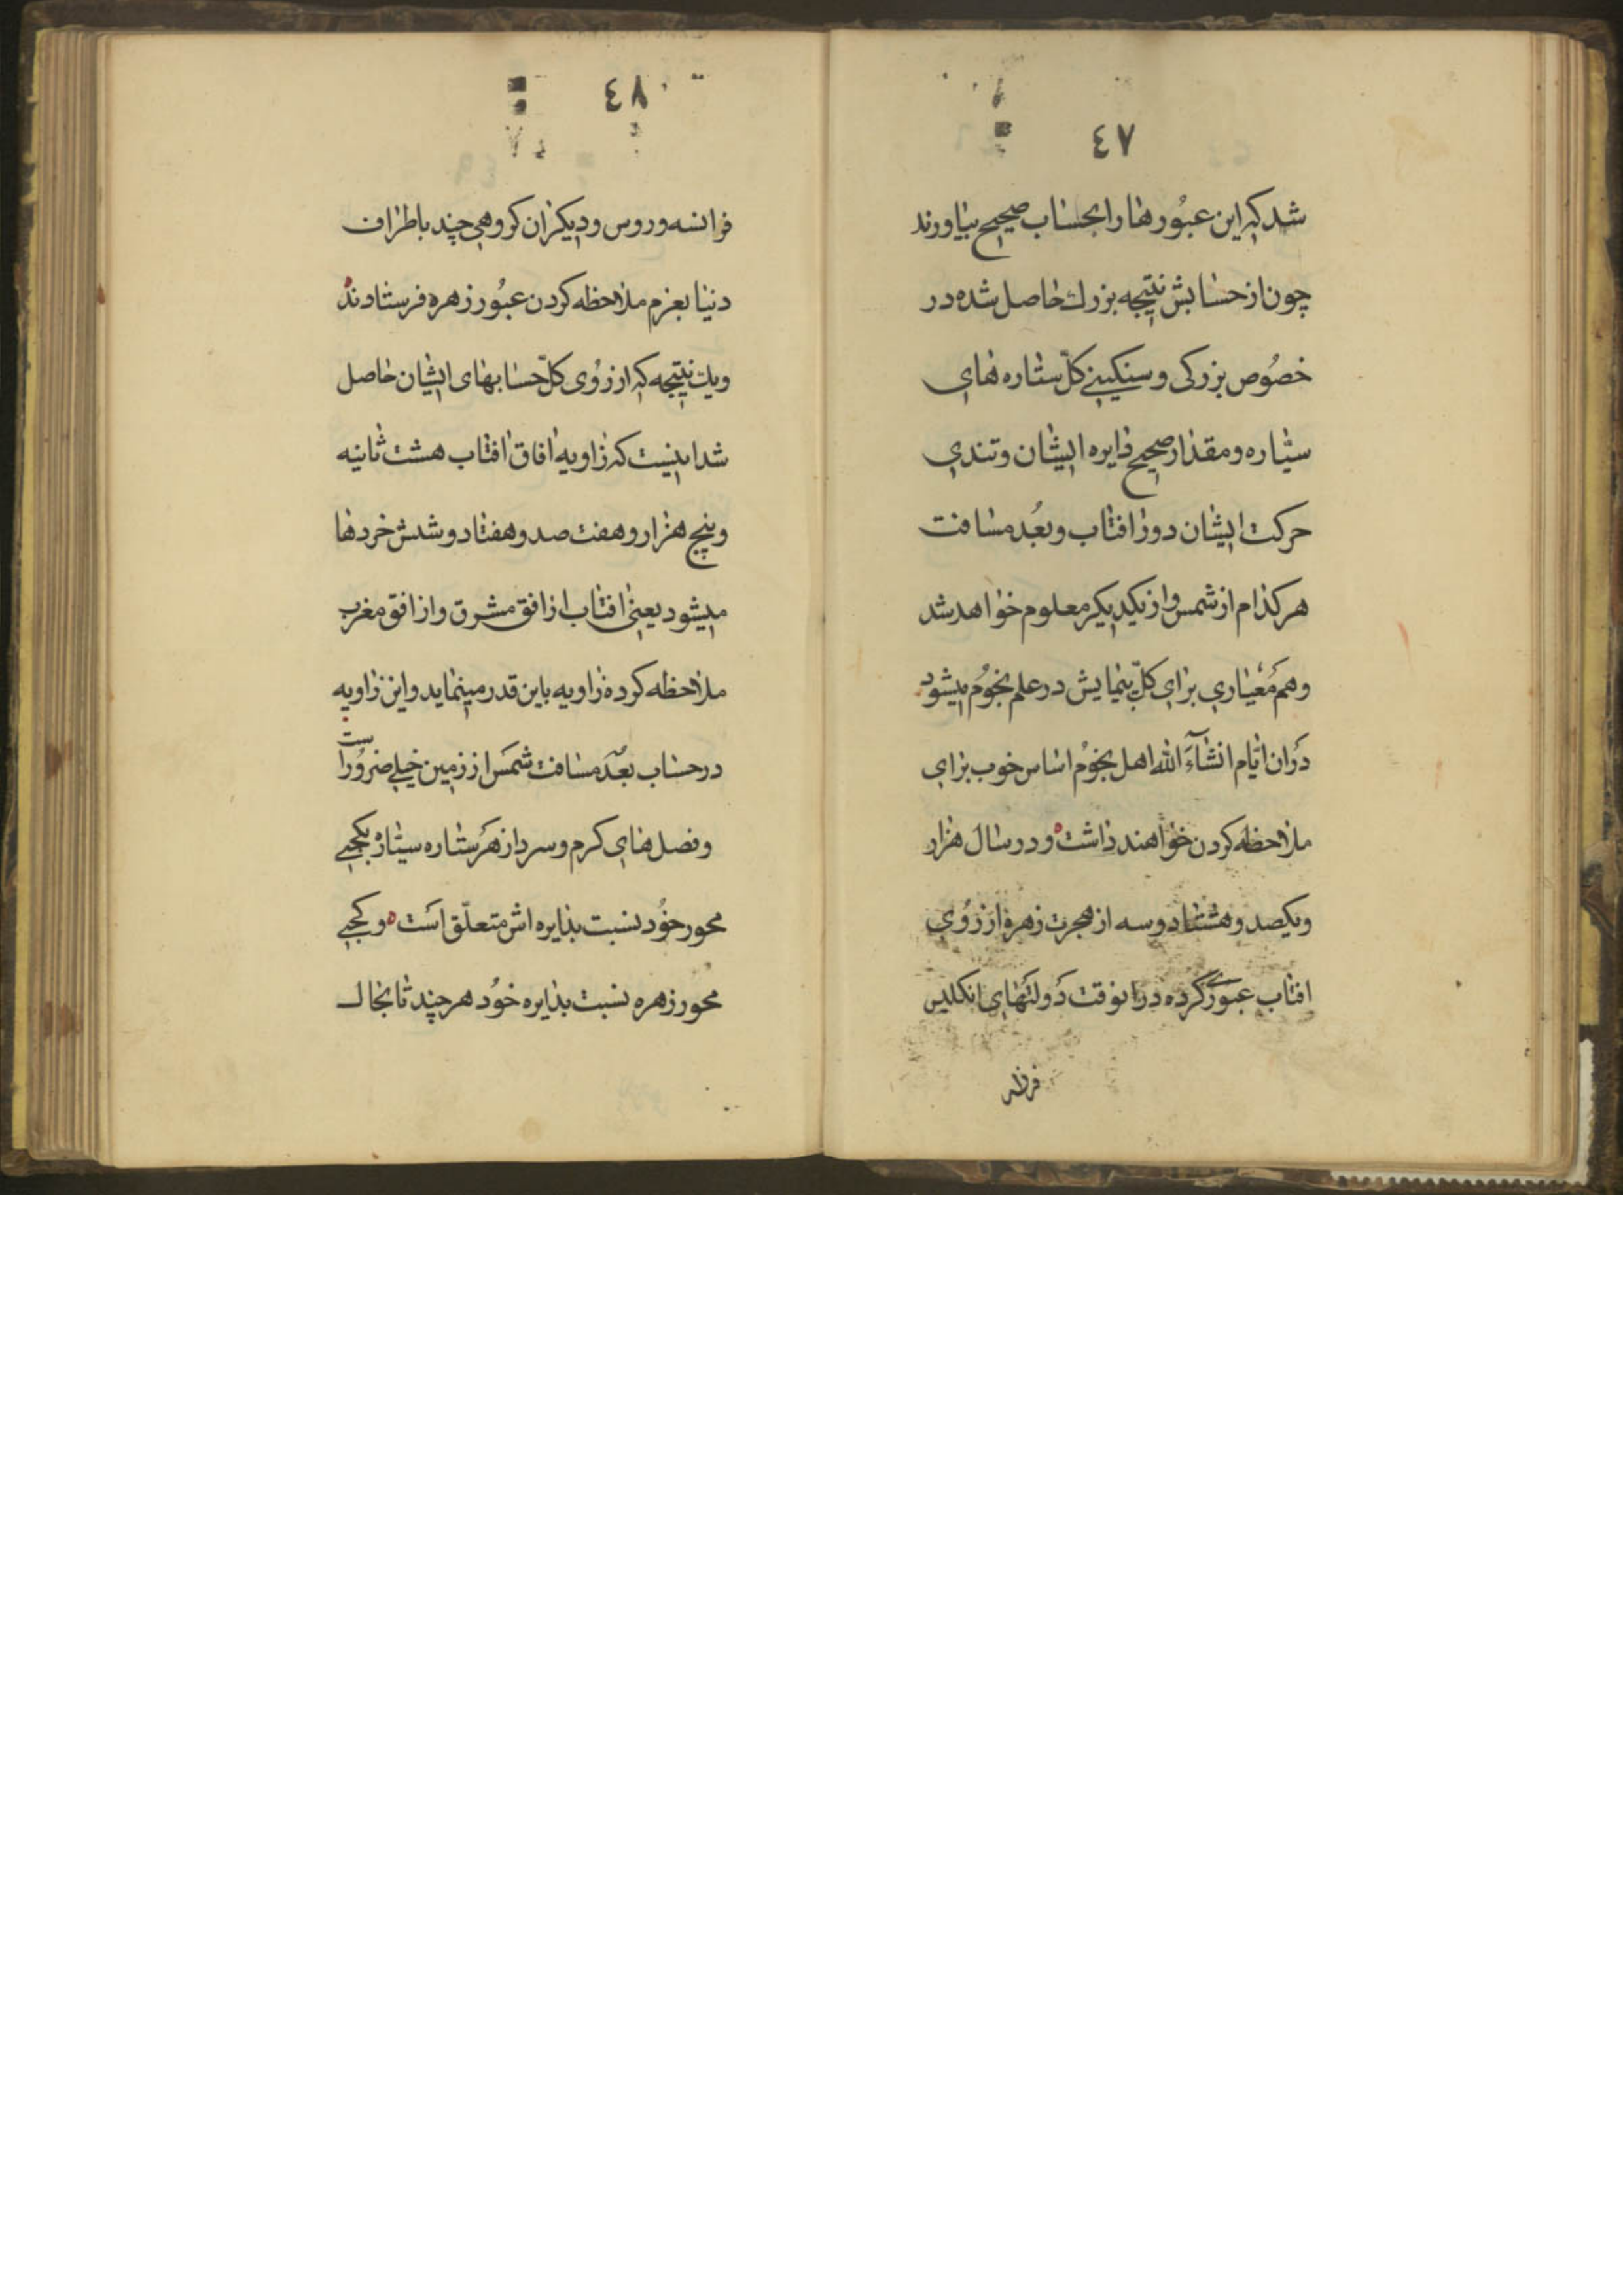 ٤٧
شد که این عبُورها را بحساب صحیح بیاورند
چون از حسابش نتیجه بزرك حاصل شده در
خصُوص بزرکی و سنکینی کلّ ستاره های
سیّاره و مقدار صحیح دایره ایشان و تندی
حرکت ایشان دور افتاب و بعُد مسافت
هر کدام از شمس و از یکدیکر معلوم خواهد شد
و هم مُعْیاری برای کلّ پیمایش در علم نجوُم میشود
دَران ایّام انشاءَ الله اهل نجوُم اساس خوب برای
ملاحظه کردن خواهند داشت ه و در سال هزار
و یکصد و هشتاد و سه از هجرت زهره از رُوی
افتاب عبوُری کرده در انوقت دَولتهای انکلیس
٤٨
فرانسه و روس و دیکران کروهی چند باطراف
دنیا بعزم ملاحظه کردن عبُور زهره فرستادند ه
و یك نتیجه که از رُوی کلّ حسابهای ایشان حاصل
شد اینست که زاویه افاق افتاب هشت ثانیه
و پنج هزار و هفت صد و هفتاد و شش خردها
میشود یعنی افتاب از افق مشرق و از افق مغرب
ملاحظه کرده زاویه باین قدر مینماید و این زاویه
در حساب بعُد مسافت شمَس از زمین خیلی ضرُور است
و فصل های کرم و سرد از هَر ستاره سیّاره بکجیی
محور خوُد نسبت بدایره اش متعلّق است ه و کجیی
محور زهره نسبت بدایره خوُد هر چند تا بحال